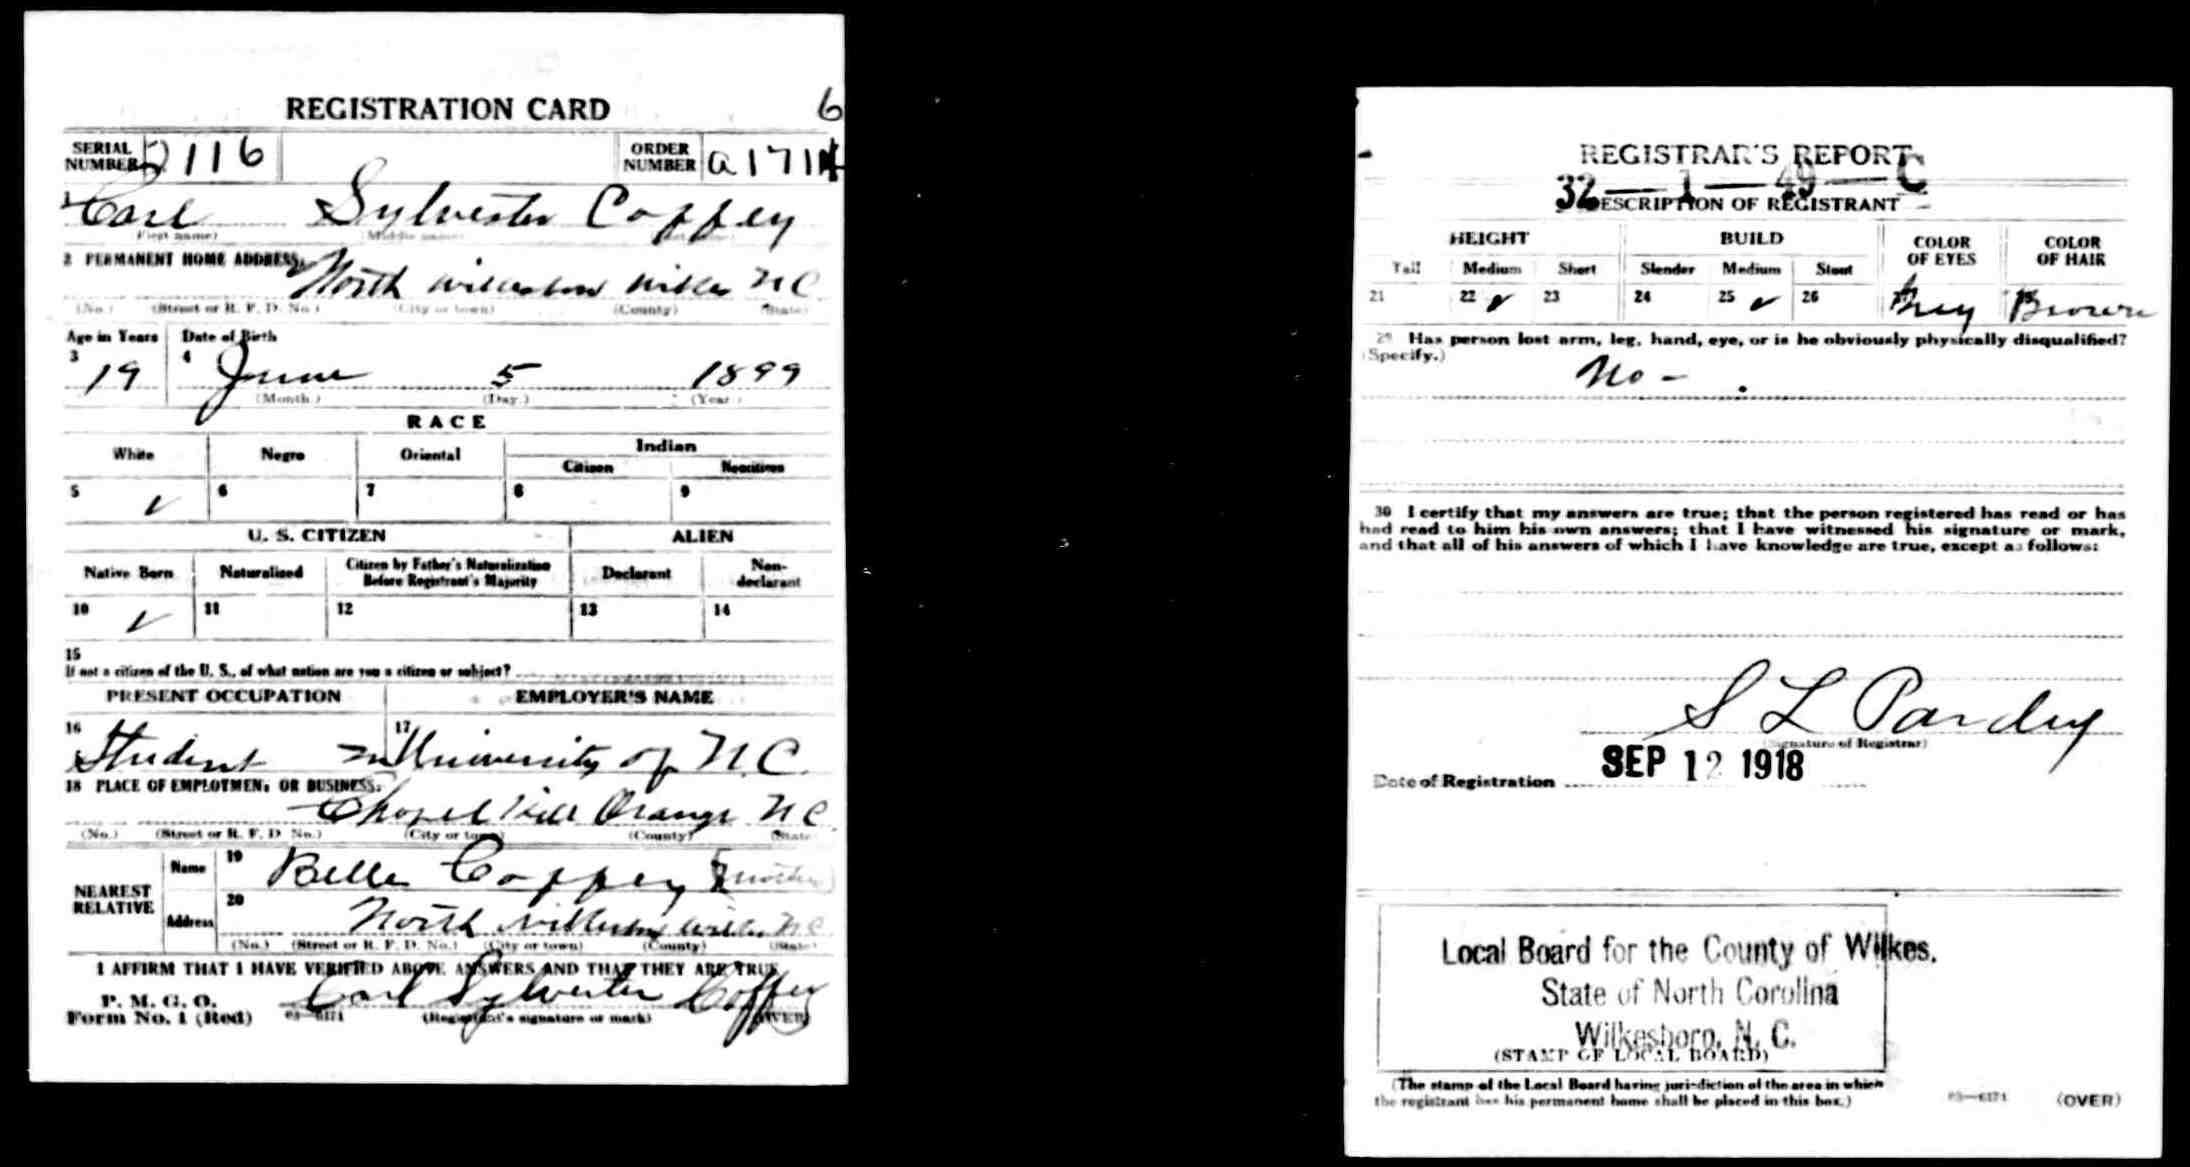 REGISTRATION CARD
6
SERIAL NUMBER 2116 ORDER NUMBER a 1714
1 Carl Sylvester Coffey
(First name) (Middle name)
2 PERMANENT HOME ADDRESS:
North Wilkesboro Wilkes N C
(No.) (Street or R. F. D. No.) (City or town) (County) (State)
Age in Years Date of Birth
3 19 4 June 5 1899
(Month.) (Day.) (Year.)
RACE
White Negro Oriental Indian
Citizen Noncitizen
5 ✓ 6 7 8 9
U. S. CITIZEN ALIEN
Native Born Naturalized Citizen by Father's Naturalization Before Registrant's Majority Declarant Non-declarant
10 ✓ 11 12 13 14
15
If not a citizen of the U. S., of what nation are you a citizen or subject?
PRESENT OCCUPATION EMPLOYER'S NAME
16 Student in 17 University of N.C.
18 PLACE OF EMPLOYMENT OR BUSINESS:
Chapel Hill Orange N C
(No.) (Street or R. F. D. No.) (City or town) (County) (State)
NEAREST RELATIVE
Name 19 Belle Coffey (mother)
Address 20 North Wilkesboro Wilkes N C
(No.) (Street or R. F. D. No.) (City or town) (County) (State)
I AFFIRM THAT I HAVE VERIFIED ABOVE ANSWERS AND THAT THEY ARE TRUE
P. M. G. O.
Form No. 1 (Red) 03—6171 Carl Sylvester Coffey
(Registrant's signature or mark) (OVER)
REGISTRAR'S REPORT
32—1—49—C
DESCRIPTION OF REGISTRANT
HEIGHT BUILD COLOR OF EYES COLOR OF HAIR
Tall Medium Short Slender Medium Stout
21 22 ✓ 23 24 25 ✓ 26 Grey Brown
29 Has person lost arm, leg, hand, eye, or is he obviously physically disqualified?
(Specify.)
No -
30 I certify that my answers are true; that the person registered has read or has
had read to him his own answers; that I have witnessed his signature or mark,
and that all of his answers of which I have knowledge are true, except as follows:
S L Pardue
(Signature of Registrar)
Date of Registration SEP 12 1918
Local Board for the County of Wilkes.
State of North Carolina
Wilkesboro, N. C.
(STAMP OF LOCAL BOARD)
(The stamp of the Local Board having jurisdiction of the area in which
the registrant has his permanent home shall be placed in this box.)
03—6171 (OVER)